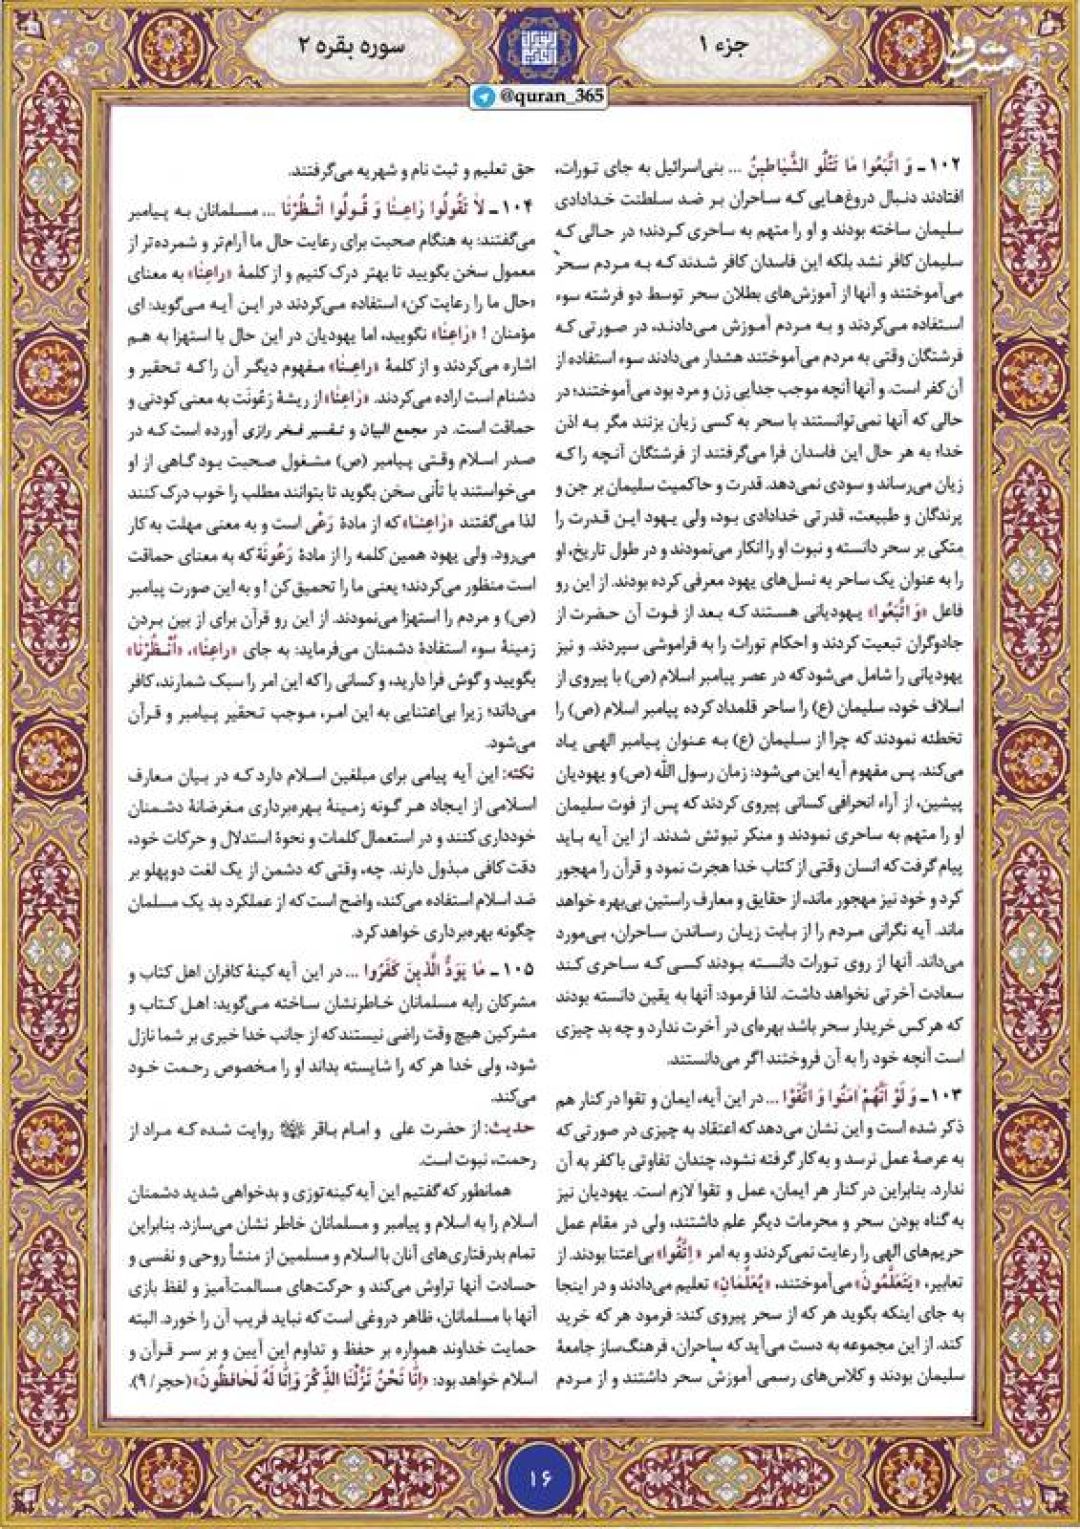 جزء ۱
سوره بقره ۲
@quran_365
مشرق
۱۰۲ـ وَ اتَّبَعُوا مَا تَتْلُو الشَّيَاطِينُ ... بنی‌اسرائیل به جای تورات،
افتادند دنبال دروغ‌هایی که ساحران بر ضد سلطنت خدادادی
سلیمان ساخته بودند و او را متهم به ساحری کردند؛ در حالی که
سلیمان کافر نشد بلکه این فاسدان کافر شدند که به مردم سحر
می‌آموختند و آنها از آموزش‌های بطلان سحر توسط دو فرشته سوء
استفاده می‌کردند و به مردم آموزش می‌دادند، در صورتی که
فرشتگان وقتی به مردم می‌آموختند هشدار می‌دادند سوء استفاده از
آن کفر است. و آنها آنچه موجب جدایی زن و مرد بود می‌آموختند؛ در
حالی که آنها نمی‌توانستند با سحر به کسی زیان بزنند مگر به اذن
خدا؛ به هر حال این فاسدان فرا می‌گرفتند از فرشتگان آنچه را که
زیان می‌رساند و سودی نمی‌دهد. قدرت و حاکمیت سلیمان بر جن و
پرندگان و طبیعت، قدرتی خدادادی بود، ولی یهود این قدرت را
متکی بر سحر دانسته و نبوت او را انکار می‌نمودند و در طول تاریخ، او
را به عنوان یک ساحر به نسل‌های یهود معرفی کرده بودند. از این رو
فاعل «وَ اتَّبَعُوا» یهودیانی هستند که بعد از فوت آن حضرت از
جادوگران تبعیت کردند و احکام تورات را به فراموشی سپردند. و نیز
یهودیانی را شامل می‌شود که در عصر پیامبر اسلام (ص) با پیروی از
اسلاف خود، سلیمان (ع) را ساحر قلمداد کرده پیامبر اسلام (ص) را
تخطئه نمودند که چرا از سلیمان (ع) به عنوان پیامبر الهی یاد
می‌کند. پس مفهوم آیه این می‌شود: زمان رسول الله (ص) و یهودیان
پیشین، از آراء انحرافی کسانی پیروی کردند که پس از فوت سلیمان
او را متهم به ساحری نمودند و منکر نبوتش شدند. از این آیه باید
پیام گرفت که انسان وقتی از کتاب خدا هجرت نمود و قرآن را مهجور
کرد و خود نیز مهجور ماند، از حقایق و معارف راستین بی‌بهره خواهد
ماند. آیه نگرانی مردم را از بابت زیان رساندن ساحران، بی‌مورد
می‌داند. آنها از روی تورات دانسته بودند کسی که ساحری کند
سعادت آخرتی نخواهد داشت. لذا فرمود: آنها به یقین دانسته بودند
که هر کس خریدار سحر باشد بهره‌ای در آخرت ندارد و چه بد چیزی
است آنچه خود را به آن فروختند اگر می‌دانستند.
۱۰۳ـ وَ لَوْ أَنَّهُمْ آمَنُوا وَ اتَّقَوْا ... در این آیه، ایمان و تقوا در کنار هم
ذکر شده است و این نشان می‌دهد که اعتقاد به چیزی در صورتی که
به عرصهٔ عمل نرسد و به کار گرفته نشود، چندان تفاوتی با کفر به آن
ندارد. بنابراین در کنار هر ایمان، عمل و تقوا لازم است. یهودیان نیز
به گناه بودن سحر و محرمات دیگر علم داشتند، ولی در مقام عمل
حریم‌های الهی را رعایت نمی‌کردند و به امر «اِتَّقُوا» بی‌اعتنا بودند. از
تعابیر، «يَتَعَلَّمُونَ» می‌آموختند، «يُعَلِّمَانِ» تعلیم می‌دادند و در اینجا
به جای اینکه بگوید هر که از سحر پیروی کند: فرمود هر که خرید
کند. از این مجموعه به دست می‌آید که ساحران، فرهنگ‌ساز جامعهٔ
سلیمان بودند و کلاس‌های رسمی آموزش سحر داشتند و از مردم
حق تعلیم و ثبت نام و شهریه می‌گرفتند.
۱۰۴ـ لاَ تَقُولُوا رَاعِنَا وَ قُولُوا انْظُرْنَا ... مسلمانان به پیامبر
می‌گفتند: به هنگام صحبت برای رعایت حال ما آرام‌تر و شمرده‌تر از
معمول سخن بگویید تا بهتر درک کنیم و از کلمهٔ «راعِنَا» به معنای
«حال ما را رعایت کن» استفاده می‌کردند در این آیه می‌گوید: ای
مؤمنان ! «رَاعِنَا» نگویید، اما یهودیان در این حال با استهزا به هم
اشاره می‌کردند و از کلمهٔ «راعِنَا» مفهوم دیگر آن را که تحقیر و
دشنام است اراده می‌کردند. «رَاعِنَا» از ریشهٔ رَعُونَت به معنی کودنی و
حماقت است. در مجمع البیان و تفسیر فخر رازی آورده است که در
صدر اسلام وقتی پیامبر (ص) مشغول صحبت بود گاهی از او
می‌خواستند با تأنی سخن بگوید تا بتوانند مطلب را خوب درک کنند
لذا می‌گفتند «رَاعِنَا» که از مادهٔ رَعْی است و به معنی مهلت به کار
می‌رود. ولی یهود همین کلمه را از مادهٔ رَعُونَة که به معنای حماقت
است منظور می‌کردند؛ یعنی ما را تحمیق کن ! و به این صورت پیامبر
(ص) و مردم را استهزا می‌نمودند. از این رو قرآن برای از بین بردن
زمینهٔ سوء استفادهٔ دشمنان می‌فرماید: به جای «راعِنَا»، «اُنْظُرْنَا»
بگویید و گوش فرا دارید، و کسانی را که این امر را سبک شمارند، کافر
می‌داند؛ زیرا بی‌اعتنایی به این امر، موجب تحقیر پیامبر و قرآن
می‌شود.
نکته: این آیه پیامی برای مبلغین اسلام دارد که در بیان معارف
اسلامی از ایجاد هر گونه زمینهٔ بهره‌برداری مغرضانهٔ دشمنان
خودداری کنند و در استعمال کلمات و نحوهٔ استدلال و حرکات خود،
دقت کافی مبذول دارند. چه، وقتی که دشمن از یک لغت دوپهلو بر
ضد اسلام استفاده می‌کند، واضح است که از عملکرد بد یک مسلمان
چگونه بهره‌برداری خواهد کرد.
۱۰۵ـ مَا يَوَدُّ الَّذِينَ كَفَرُوا ... در این آیه کینهٔ کافران اهل کتاب و
مشرکان را به مسلمانان خاطرنشان ساخته می‌گوید: اهل کتاب و
مشرکین هیچ وقت راضی نیستند که از جانب خدا خیری بر شما نازل
شود، ولی خدا هر که را شایسته بداند او را مخصوص رحمت خود
می‌کند.
حدیث: از حضرت علی و امام باقر روایت شده که مراد از
رحمت، نبوت است.
همانطور که گفتیم این آیه کینه‌توزی و بدخواهی شدید دشمنان
اسلام را به اسلام و پیامبر و مسلمانان خاطر نشان می‌سازد. بنابراین
تمام بدرفتاری‌های آنان با اسلام و مسلمین از منشأ روحی و نفسی و
حسادت آنها تراوش می‌کند و حرکت‌های مسالمت‌آمیز و لفظ بازی
آنها با مسلمانان، ظاهر دروغی است که نباید فریب آن را خورد. البته
حمایت خداوند همواره بر حفظ و تداوم این آیین و بر سر قرآن و
اسلام خواهد بود: «إِنَّا نَحْنُ نَزَّلْنَا الذِّكْرَ وَإِنَّا لَهُ لَحَافِظُونَ» (حجر/ ۹).
۱۶